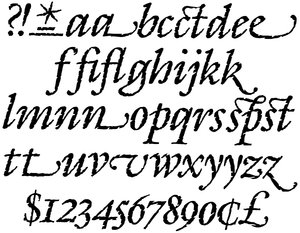 ?!*aa bcctdee
ffiflghijkk
lmnn opqrsspst
tt uvvwxyyzz
$1234567890¢£